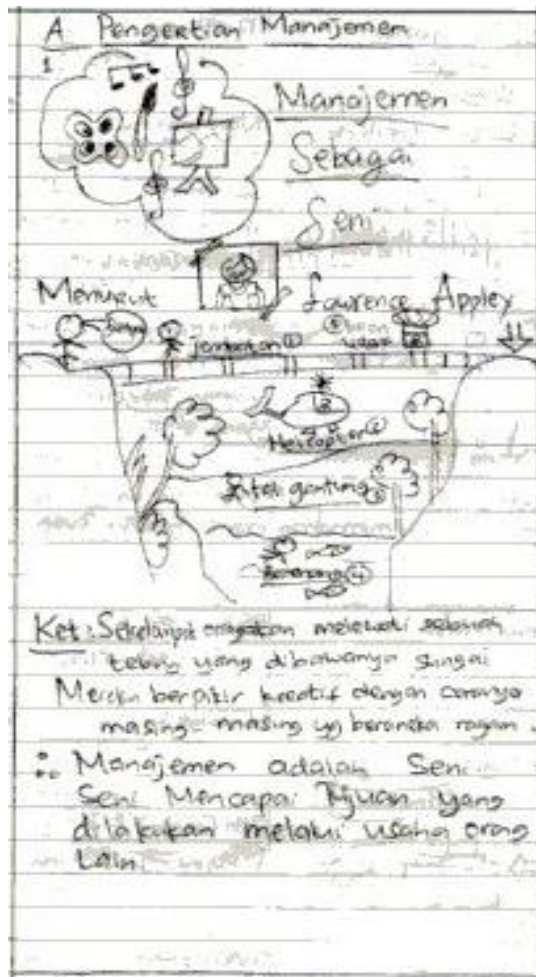 A Pengertian Manajemen
1
Manajemen
Sebagai
Seni
Menurut Lawrence Appley
jembatan ①
⑤ udara
Helicopter ②
gantung ③
Berenang ④
Ket: Sekelompok orang akan melewati sebuah
tebing yang dibawanya sungai
Mereka berpikir kreatif dengan caranya
masing-masing yg beraneka ragam.
∴ Manajemen adalah Seni
Seni Mencapai Tujuan yang
dilakukan melalui usaha orang
Lain